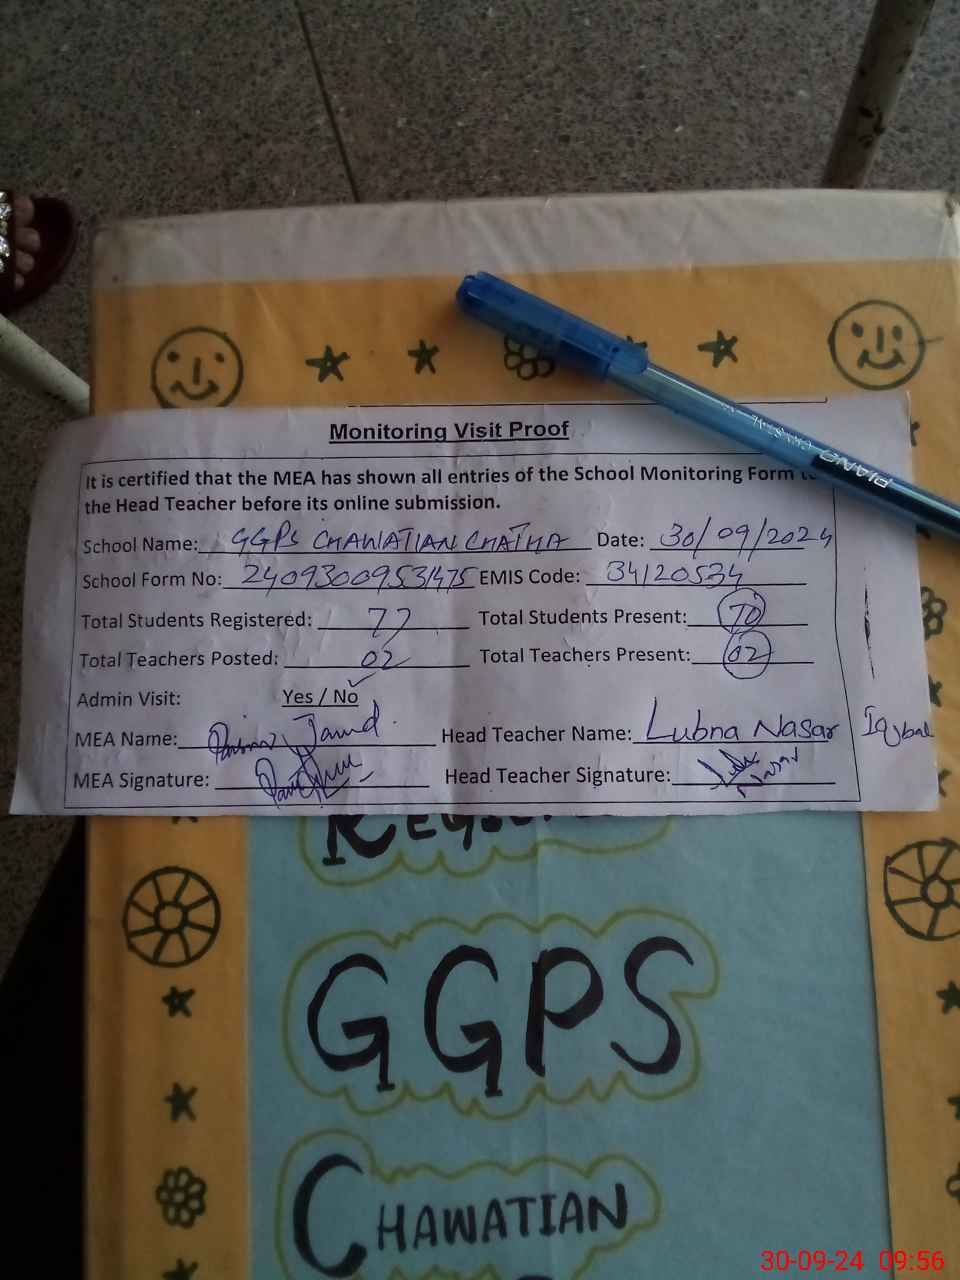 Monitoring Visit Proof
It is certified that the MEA has shown all entries of the School Monitoring Form to
the Head Teacher before its online submission.
School Name: GGPS CHAWATIAN CHATHA Date: 30/09/2024
School Form No: 24093009531475 EMIS Code: 34120534
Total Students Registered: 77 Total Students Present: 70
Total Teachers Posted: 02 Total Teachers Present: 02
Admin Visit: Yes / No
MEA Name: Javed Head Teacher Name: Lubna Nasar Iqbal
MEA Signature: Head Teacher Signature:
PIANO CRYSTAL
GGPS
CHAWATIAN
30-09-24 09:56